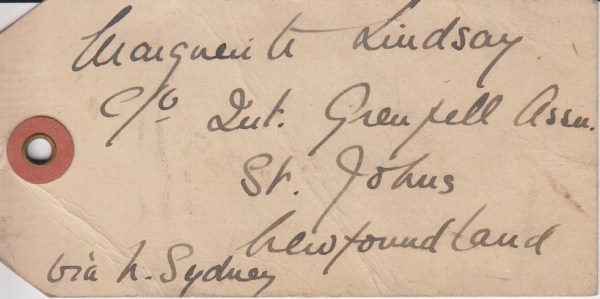 Marguerite Lindsay
c/o Int. Grenfell Assn.
St. Johns
Newfoundland
via N. Sydney